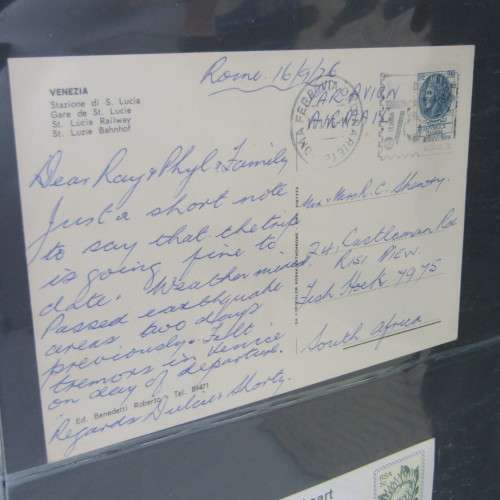 Rome 16/9/76
VENEZIA
Stazione di S. Lucia
Gare de St. Lucie
St. Lucia Railway
St. Luzie Bahnhof
PAR AVION
AIR MAIL
ROMA FERROVIA
Dear Ray & Phyl & Family
Just a short note
to say that the trip
is going fine to
date. Weather mixed
Passed earthquake
areas two days
previously. Felt
tremors in Venice
on day of departure.
Regards Dulcie & Shorty.
Mr. & Mrs R. C.
74, Castleman Rd
Fish Hoek 7975
South Africa
Ed. Benedetti Roberto - Tel. 89421
RSA